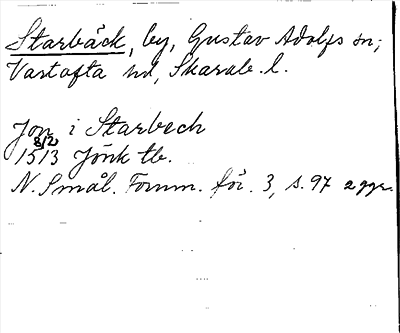 Starbäck, by, Gustav Adolfs sn;
Vartofta hd, Skarab. l.
Jon i Starbech
8/2
1513 Jönk tb.
N. Smål. Fornm. för. 3, s. 97 2 ggr.